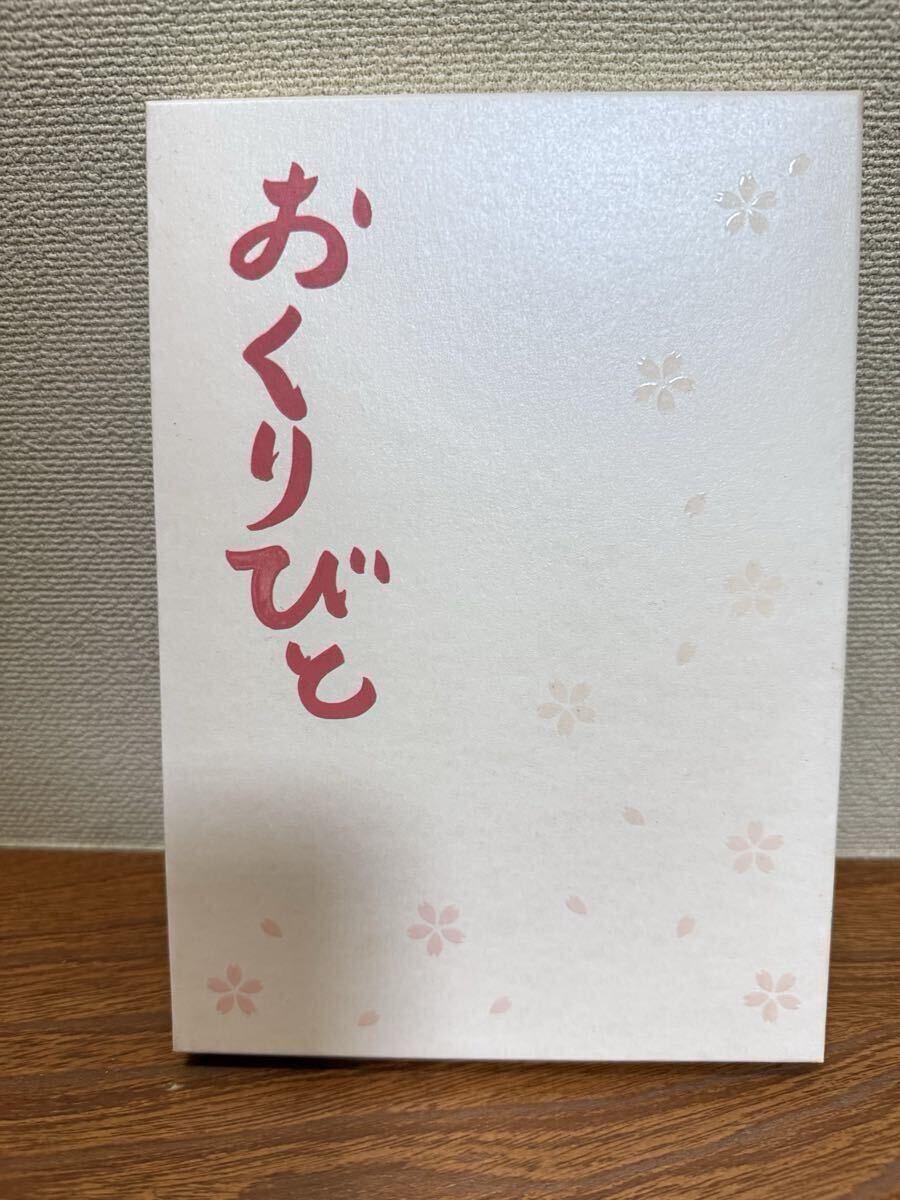 おくりびと